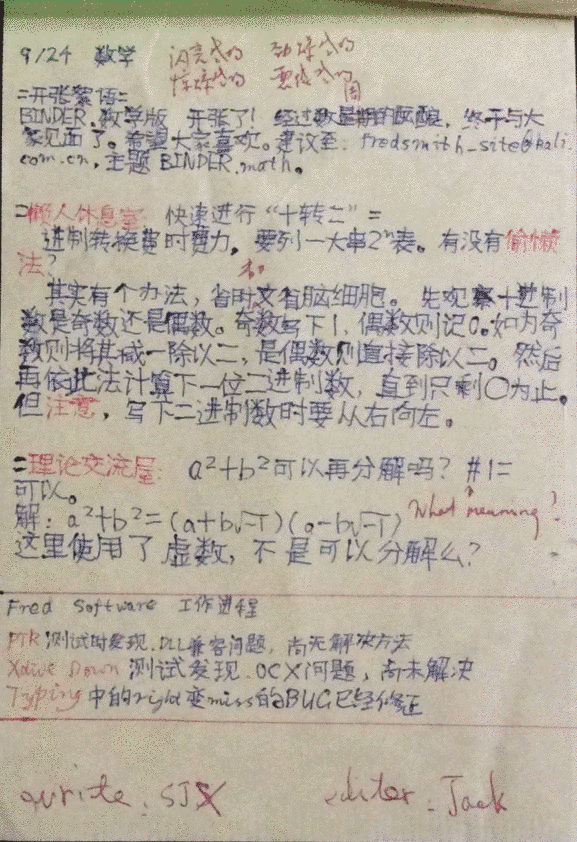 9/24 数学 闪亮式的 劲球式的
惊球式的 要式的
周
=开张絮语=
BINDER.数学版 开张了! 经过数星期的酝酿, 终于与大
家见面了。希望大家喜欢。建议至: fredsmith_site@kali.
com.cn, 主题 BINDER.math。
=懒人休息室: 快速进行“十转二”=
进制转换费时费力。要列一大串2ⁿ表。有没有偷懒
法?
其实有个办法, 省时又省脑细胞。先观察十进制
数是奇数还是偶数。奇数写下1, 偶数则记0。如为奇
数则将其减一除以二, 是偶数则直接除以二。然后
再依此法计算下一位二进制数, 直到只剩〇为止。
但注意, 写下二进制数时要从右向左。
=理论交流屋: a²+b²可以再分解吗? #1=
可以。
解: a²+b²=(a+b√-1)(a-b√-1) What meaning?
这里使用了虚数, 不是可以分解么?
Fred Software 工作进程
PTR 测试时发现.DLL兼容问题, 尚无解决方法
Xdive Down 测试发现.OCX问题, 尚未解决
Typing 中的right变miss的BUG已经修正
write: SJX editer: Jack